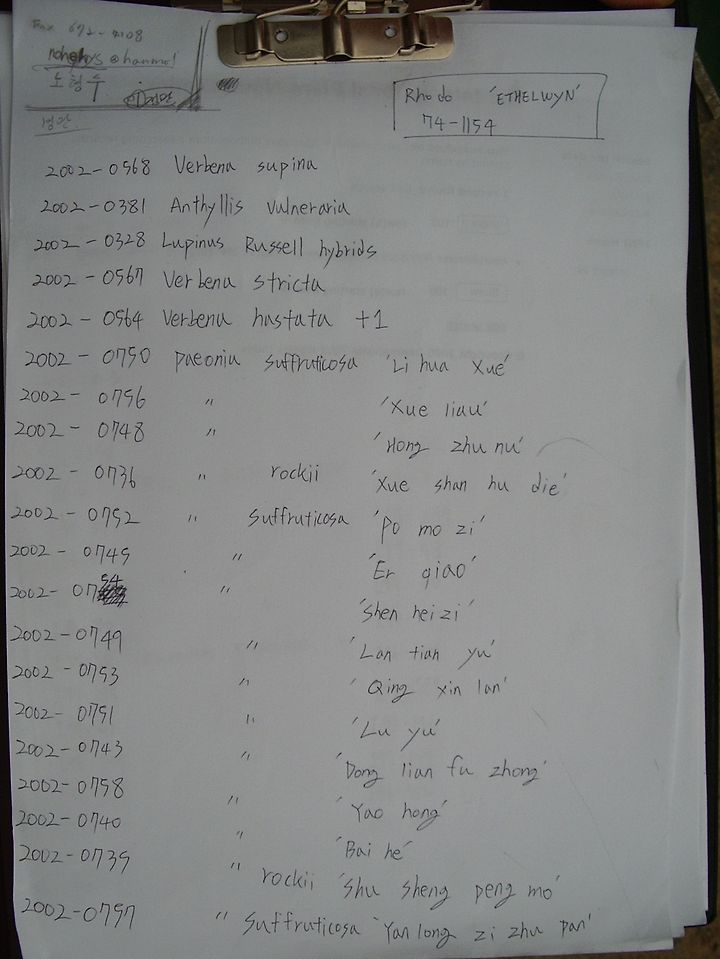 Fax
Rhodo 'ETHELWYN'
74-1154
2002-0568 Verbena supina
2002-0381 Anthyllis vulneraria
2002-0328 Lupinus Russell hybrids
2002-0567 Verbena stricta
2002-0564 Verbena hastata +1
2002-0750 paeonia suffruticosa 'Li hua Xue'
2002-0756 〃 'Xue liau'
2002-0748 〃 'Hong zhu nu'
2002-0736 〃 rockii 'Xue shan hu die'
2002-0752 〃 suffruticosa 'Po mo zi'
2002-0745 〃 'Er qiao'
2002-0754 〃 'Shen hei zi'
2002-0749 〃 'Lan tian yu'
2002-0753 〃 'Qing xin lan'
2002-0751 〃 'Lu yu'
2002-0743 〃 'Dong lian fu zhong'
2002-0758 〃 'Yao hong'
2002-0740 〃 'Bai he'
2002-0735 〃 rockii 'Shu sheng peng mo'
2002-0757 〃 suffruticosa 'Yan long zi zhu pan'